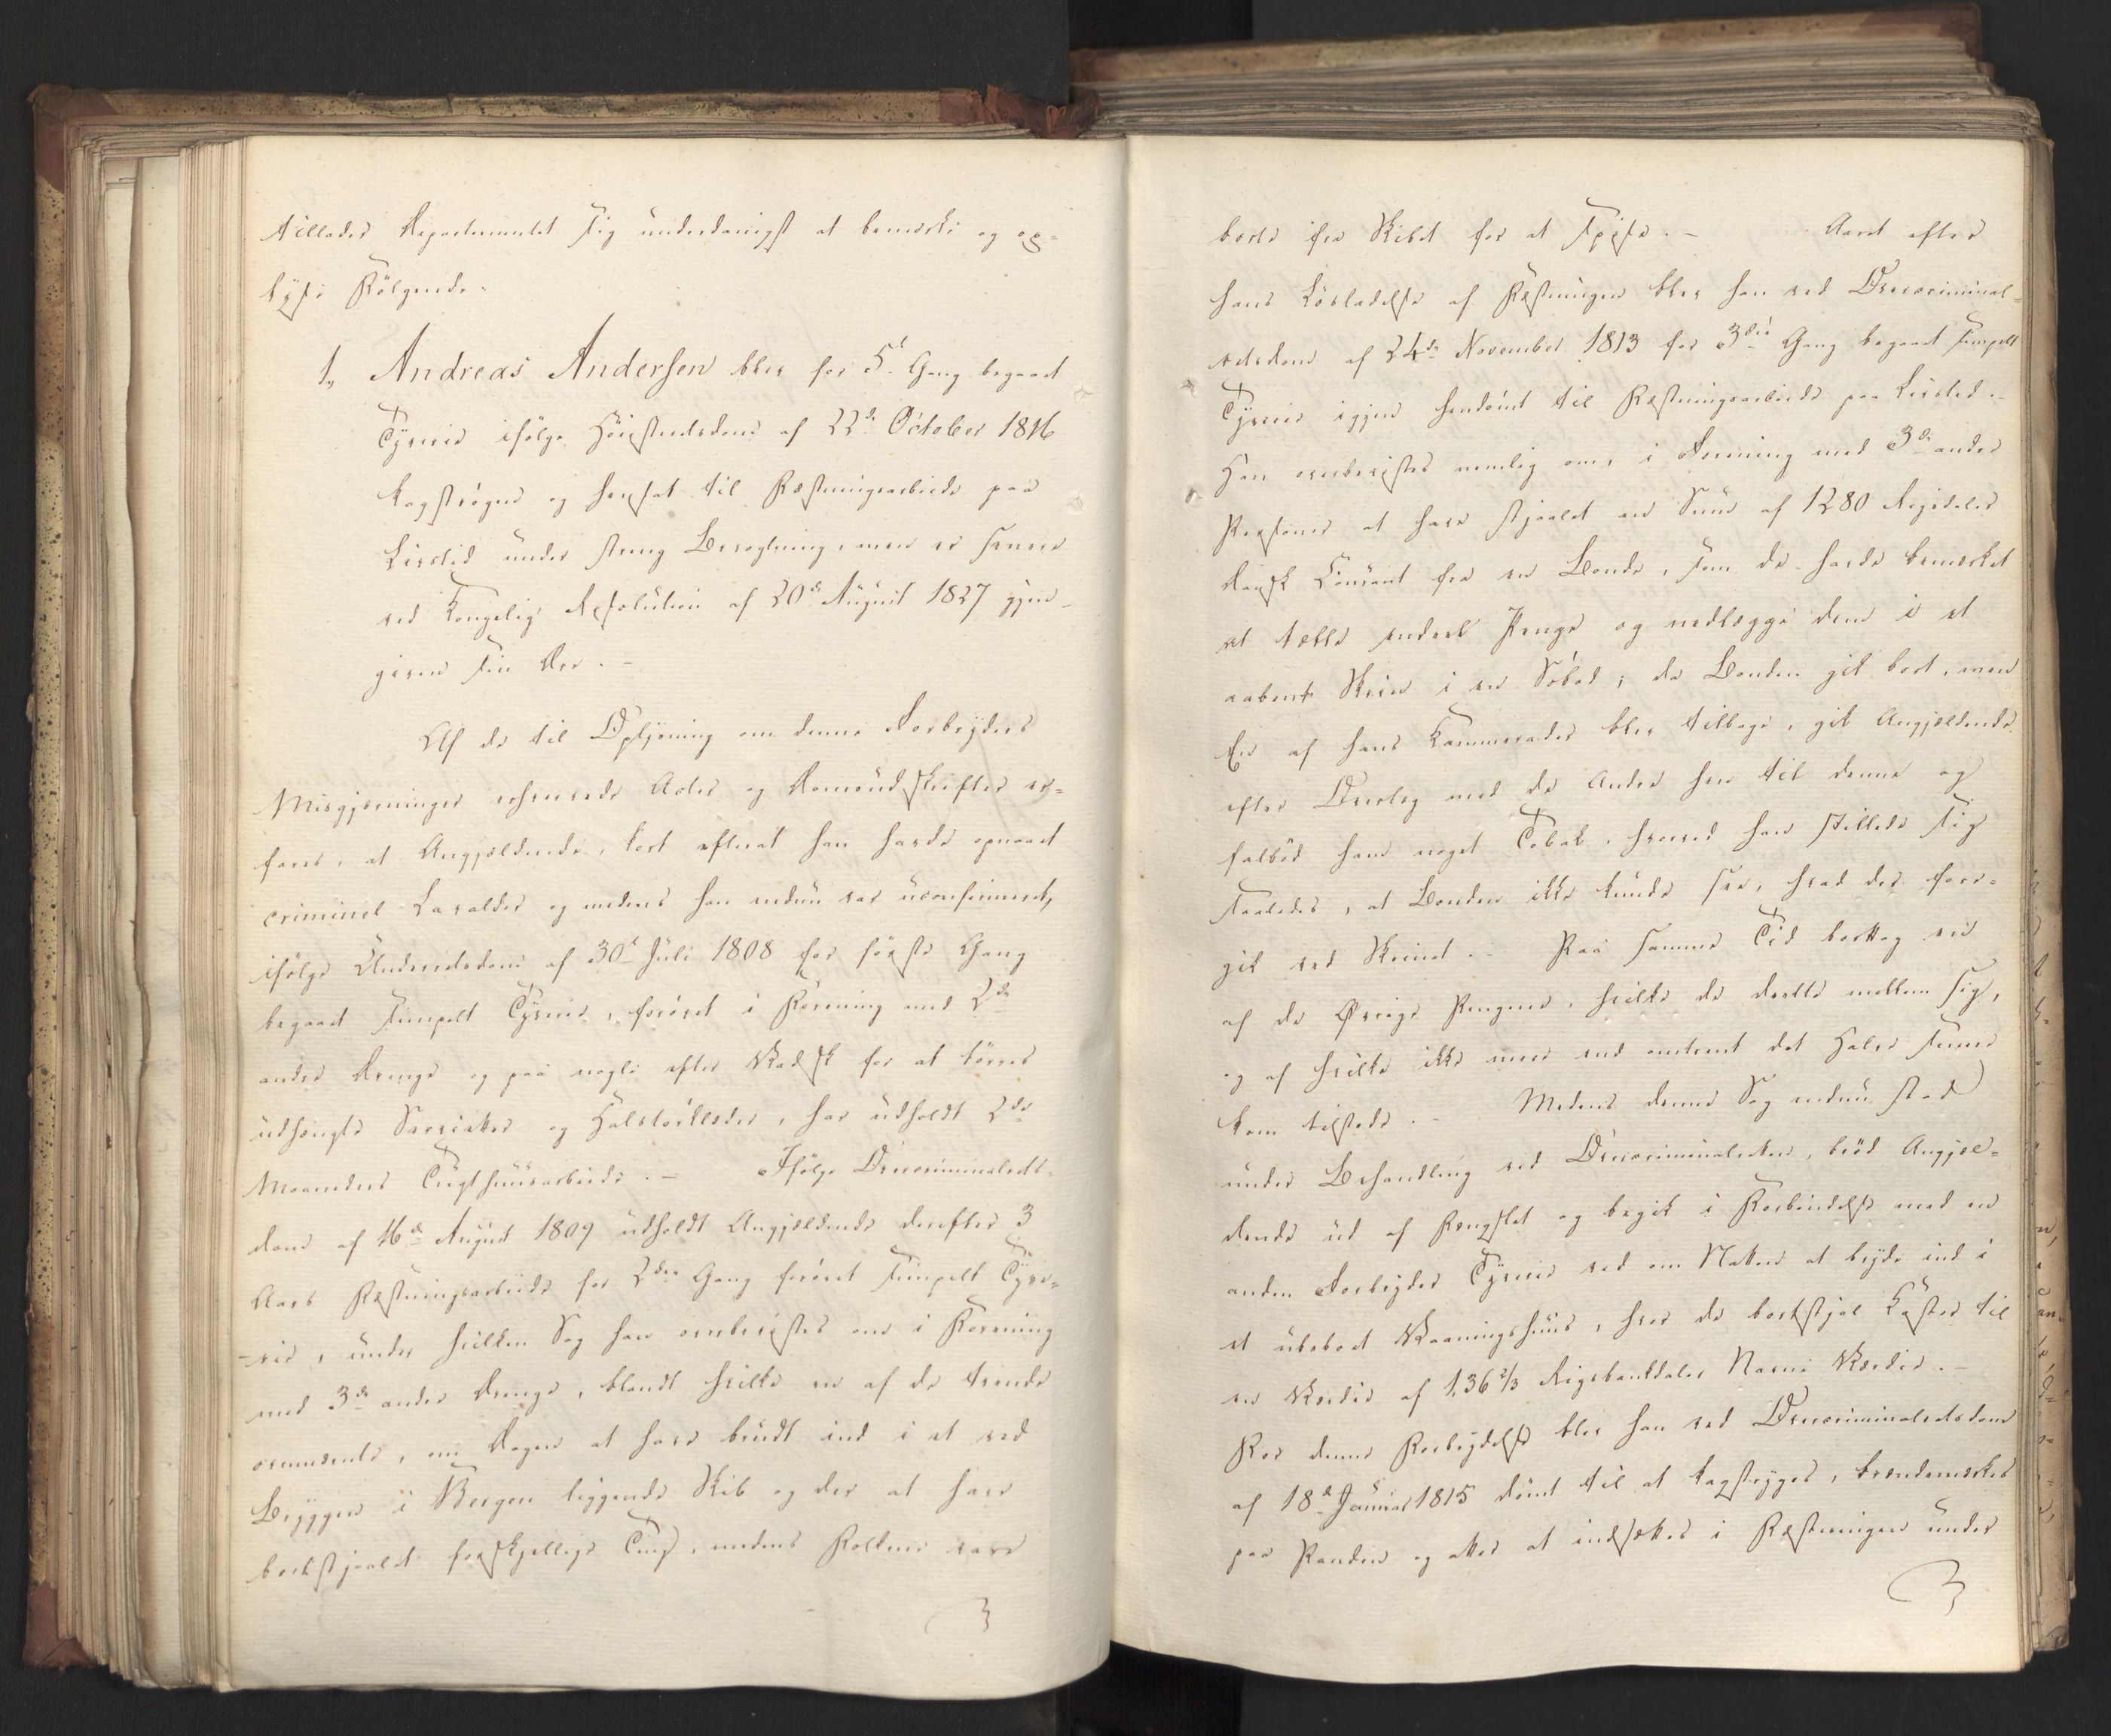 tillader Departementet sig underdanigst at bemærke og op=
lyse Følgende.
1, Andreas Andersen blev for 5te Gang begaaet
Tyverie ifølge Høiesteretsdom af 22de October 1816
kagstrøgen og hensat til Fæstningsarbeide paa
Livstid under streng Bevogtning, men er senere
ved Kongelig Resolution af 20de August 1827 gjen-
given sin Ære. -
Af de til Oplysning om denne Forbryders
Misgjerninger erhvervede Acter og Domsudskrifter er=
fares, at Angjældende, kort efterat han havde opnaaet
criminel Lavalder og medens han endnu var uconfirmeret,
ifølge Underretsdom af 30te Juli 1808 for første Gang
begaaet simpelt Tyverie, forøvet i Forening med 2de
andre Drenge og paa nogle efter Vadsk for at tørres
udhængte Servietter og Halstørklæder, har udholdt 2de
Maaneders Tugthuusarbeide. - Ifølge Overcriminalrets-
dom af 16de August 1809 udholdt Angjældende derefter 3
Aars Fæstningsarbeide for 2den Gang forøvet simpelt Tyve=
-rie, under hvilken Sag han overbevistes om i Forening
med 3de andre Drenge, blandt hvilke en af de trende
ovennævnte, om Dagen at have brudt ind i et ved
Bryggen i Bergen liggende Skib og der at have
bortstjaalet forskjellige Ting, medens Folkene vare
borte fra Skibet for at spise. - Aaret efter
hans Løsladelse af Fæstningen blev han ved Overcriminal=
retsdom af 24de November 1813 for 3die Gang begaaet simpelt
Tyverie igjen hendømt til Fæstningsarbeide paa Livstid. -
Han overbevistes nemlig om, i Forening med 3de andre
Personer at have stjaalet en Sum af 1280 Rigsdaler
dansk Courant fra en Bonde, som de havde bemærket
at tælle endeel Penge og nedlægge dem i et
aabent Skrin i en Søbod; da Bonden gik bort, men
En af hans Kammerader blev tilbage, gik Angjældende
efter Overlæg med de Andre hen til denne og
falbød ham noget Tobak, hvorved han stillede sig
saaledes, at Bonden ikke kunde see, hvad der fore=
gik ved Skrinet. - Paa samme Tid borttog en
af de Øvrige Pengene, hvilke de deelte mellem sig,
og af hvilke ikke mere end omtrent det Halve siden
kom tilstede. - Medens denne Sag endnu stod
under Behandling ved Overcriminalretten, brød Angjæl=
dende ud af Fængslet og begik i Forbindelse med en
anden Forbryder Tyverie ved om Natten at bryde ind i
et ubeboet Vaaningshuus, hvor de bortstjal Koster til
en Værdie af 136 2/3 Rigsbankdaler Navne Værdie. -
For denne Forbrydelse blev han ved Overcriminalretsdom
af 18de Januar 1815 dømt til at kagstryges, brændemærkes
paa Panden og atter at indsættes i Fæstningen under